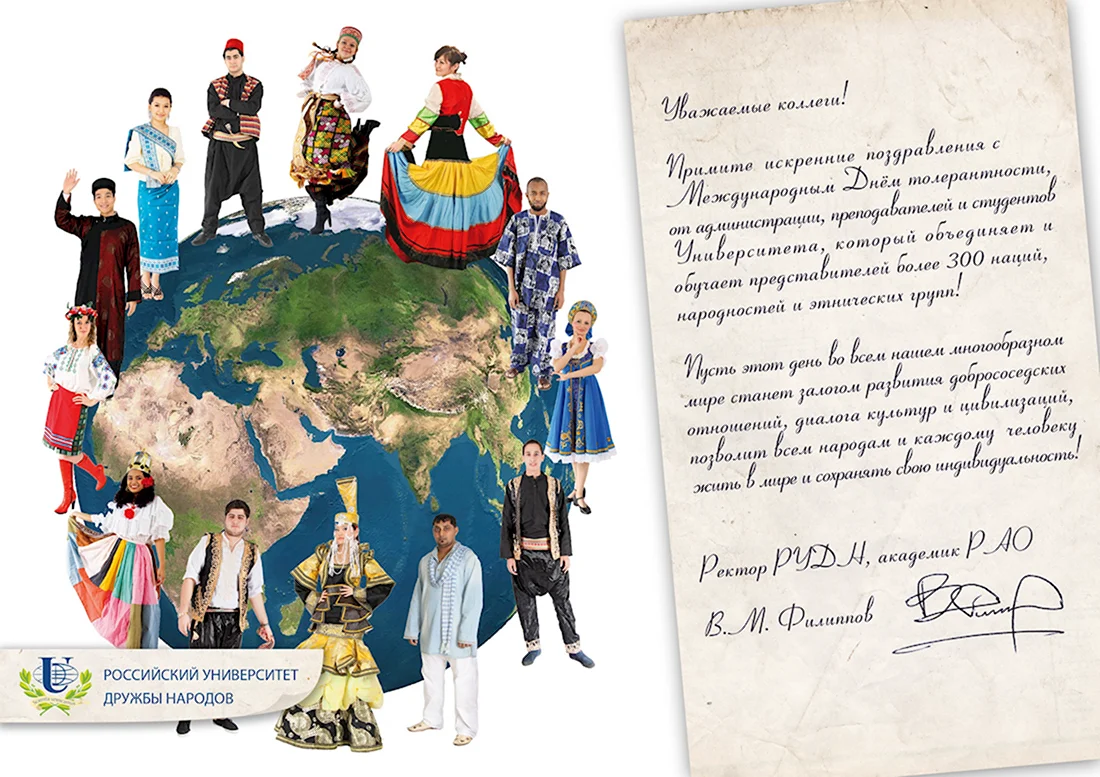 Уважаемые коллеги!
Примите искренние поздравления с
Международным Днём толерантности,
от администрации, преподавателей и студентов
Университета, который объединяет и
обучает представителей более 300 наций,
народностей и этнических групп!
Пусть этот день во всем нашем многообразном
мире станет залогом развития добрососедских
отношений, диалога культур и цивилизаций,
позволит всем народам и каждому человеку
жить в мире и сохранять свою индивидуальность!
Ректор РУДН, академик РАО
В.М. Филиппов
РОССИЙСКИЙ УНИВЕРСИТЕТ
ДРУЖБЫ НАРОДОВ